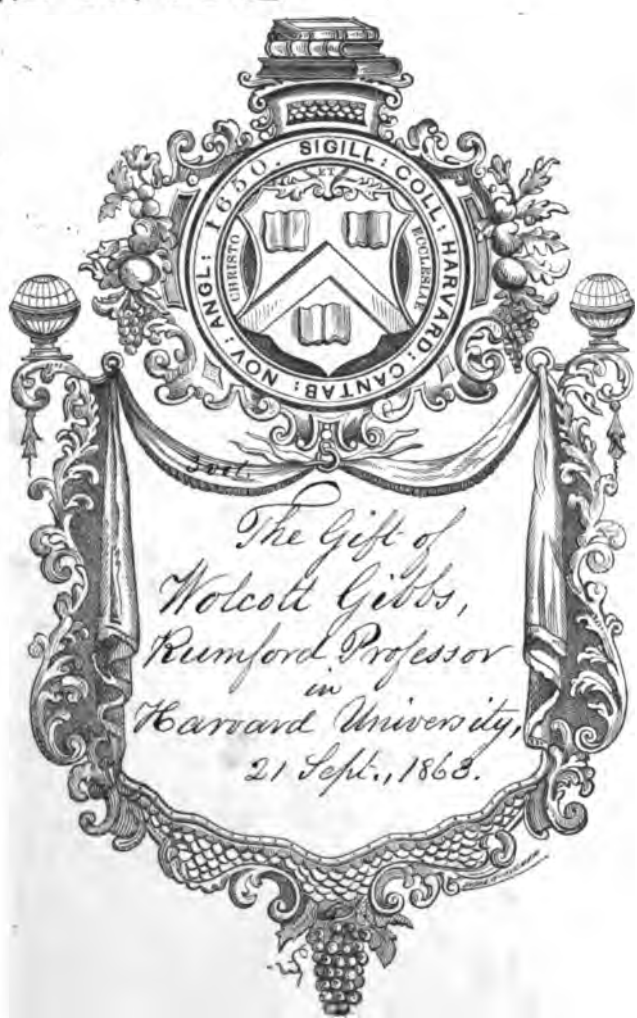 SIGILL: COLL: HARVARD: CANTAB: NOV: ANGL: 1650.
ET
CHRISTO
ECCLESIAE
The Gift of
Wolcott Gibbs,
Rumford Professor
in
Harvard University,
21 Sept., 1863.